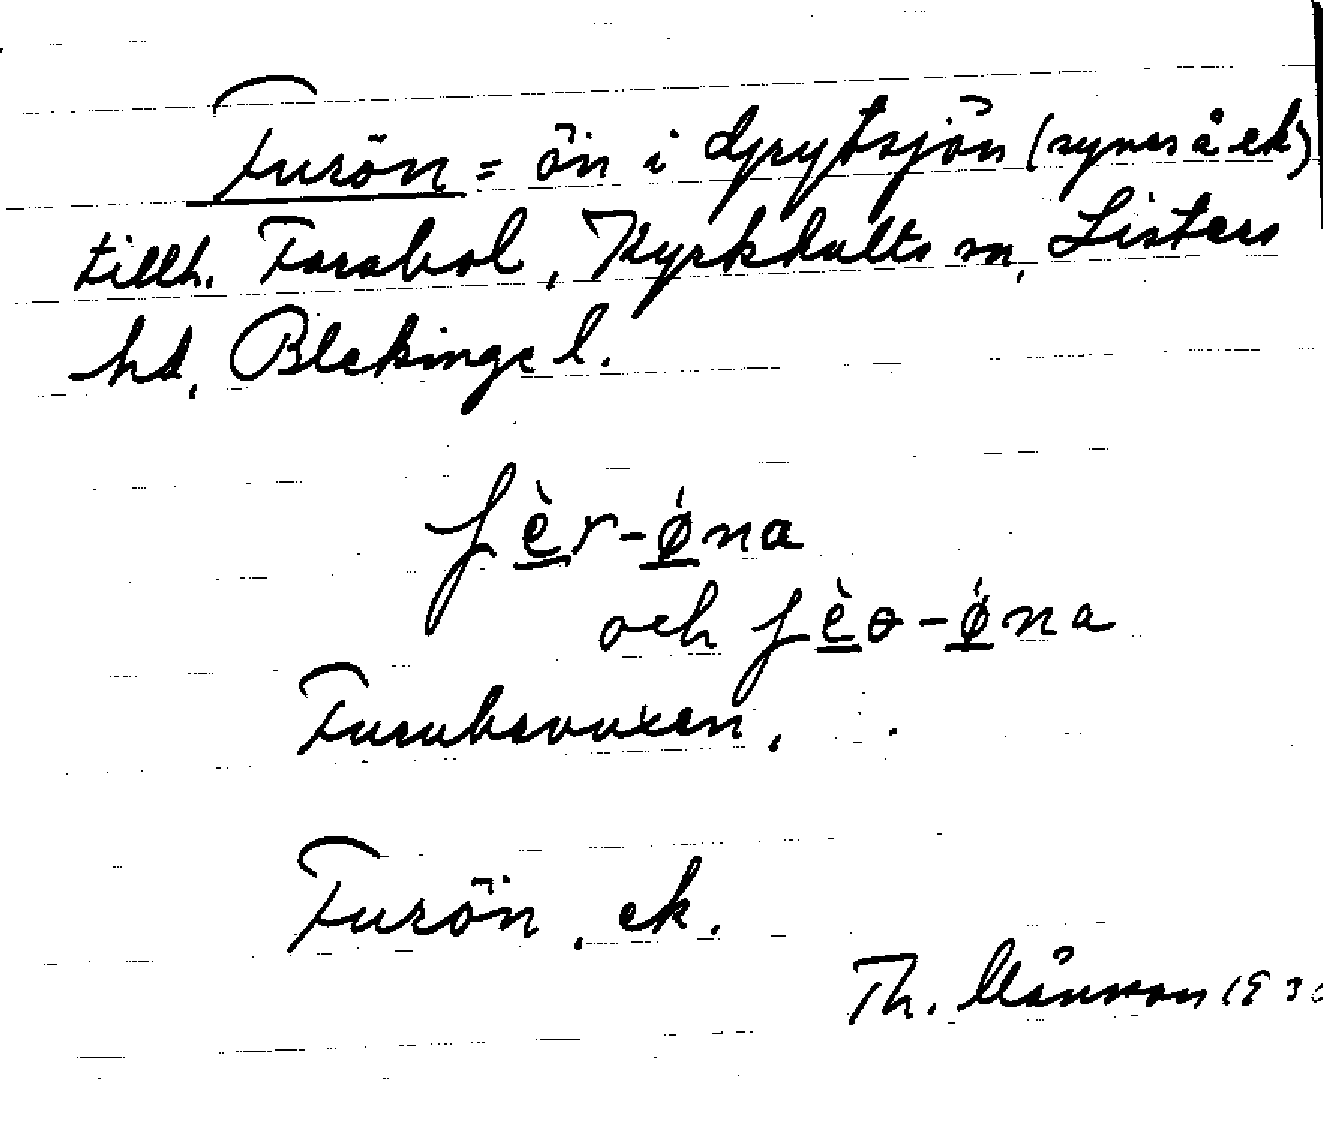 Furön = ön i Grytsjön (synes å ek)
tillh. Farabol, Kyrkhults sn, Listers
hd, Blekinge l.
fèr-ǿna
och fèo-ǿna
Furubevuxen.
Furön, ek.
Th. Månsson 193